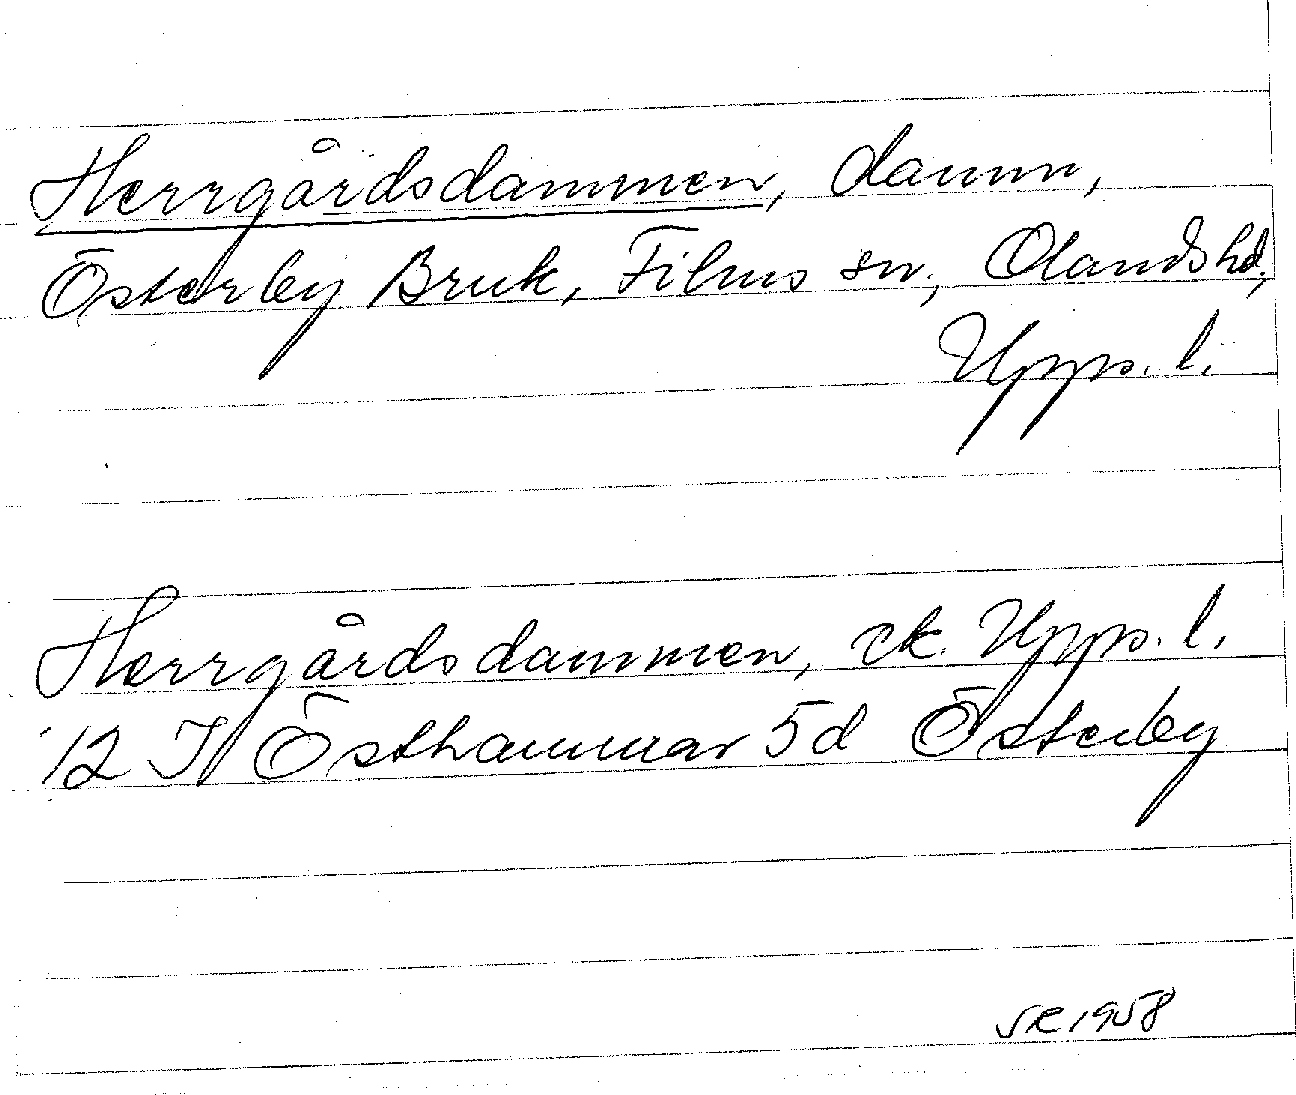 Herrgårdsdammen, damm,
Österby Bruk, Films sn, Olands hd,
Upps. l.
Herrgårdsdammen, ek. Upps. l.
12 I Östhammar 5d Österby
SR 1958